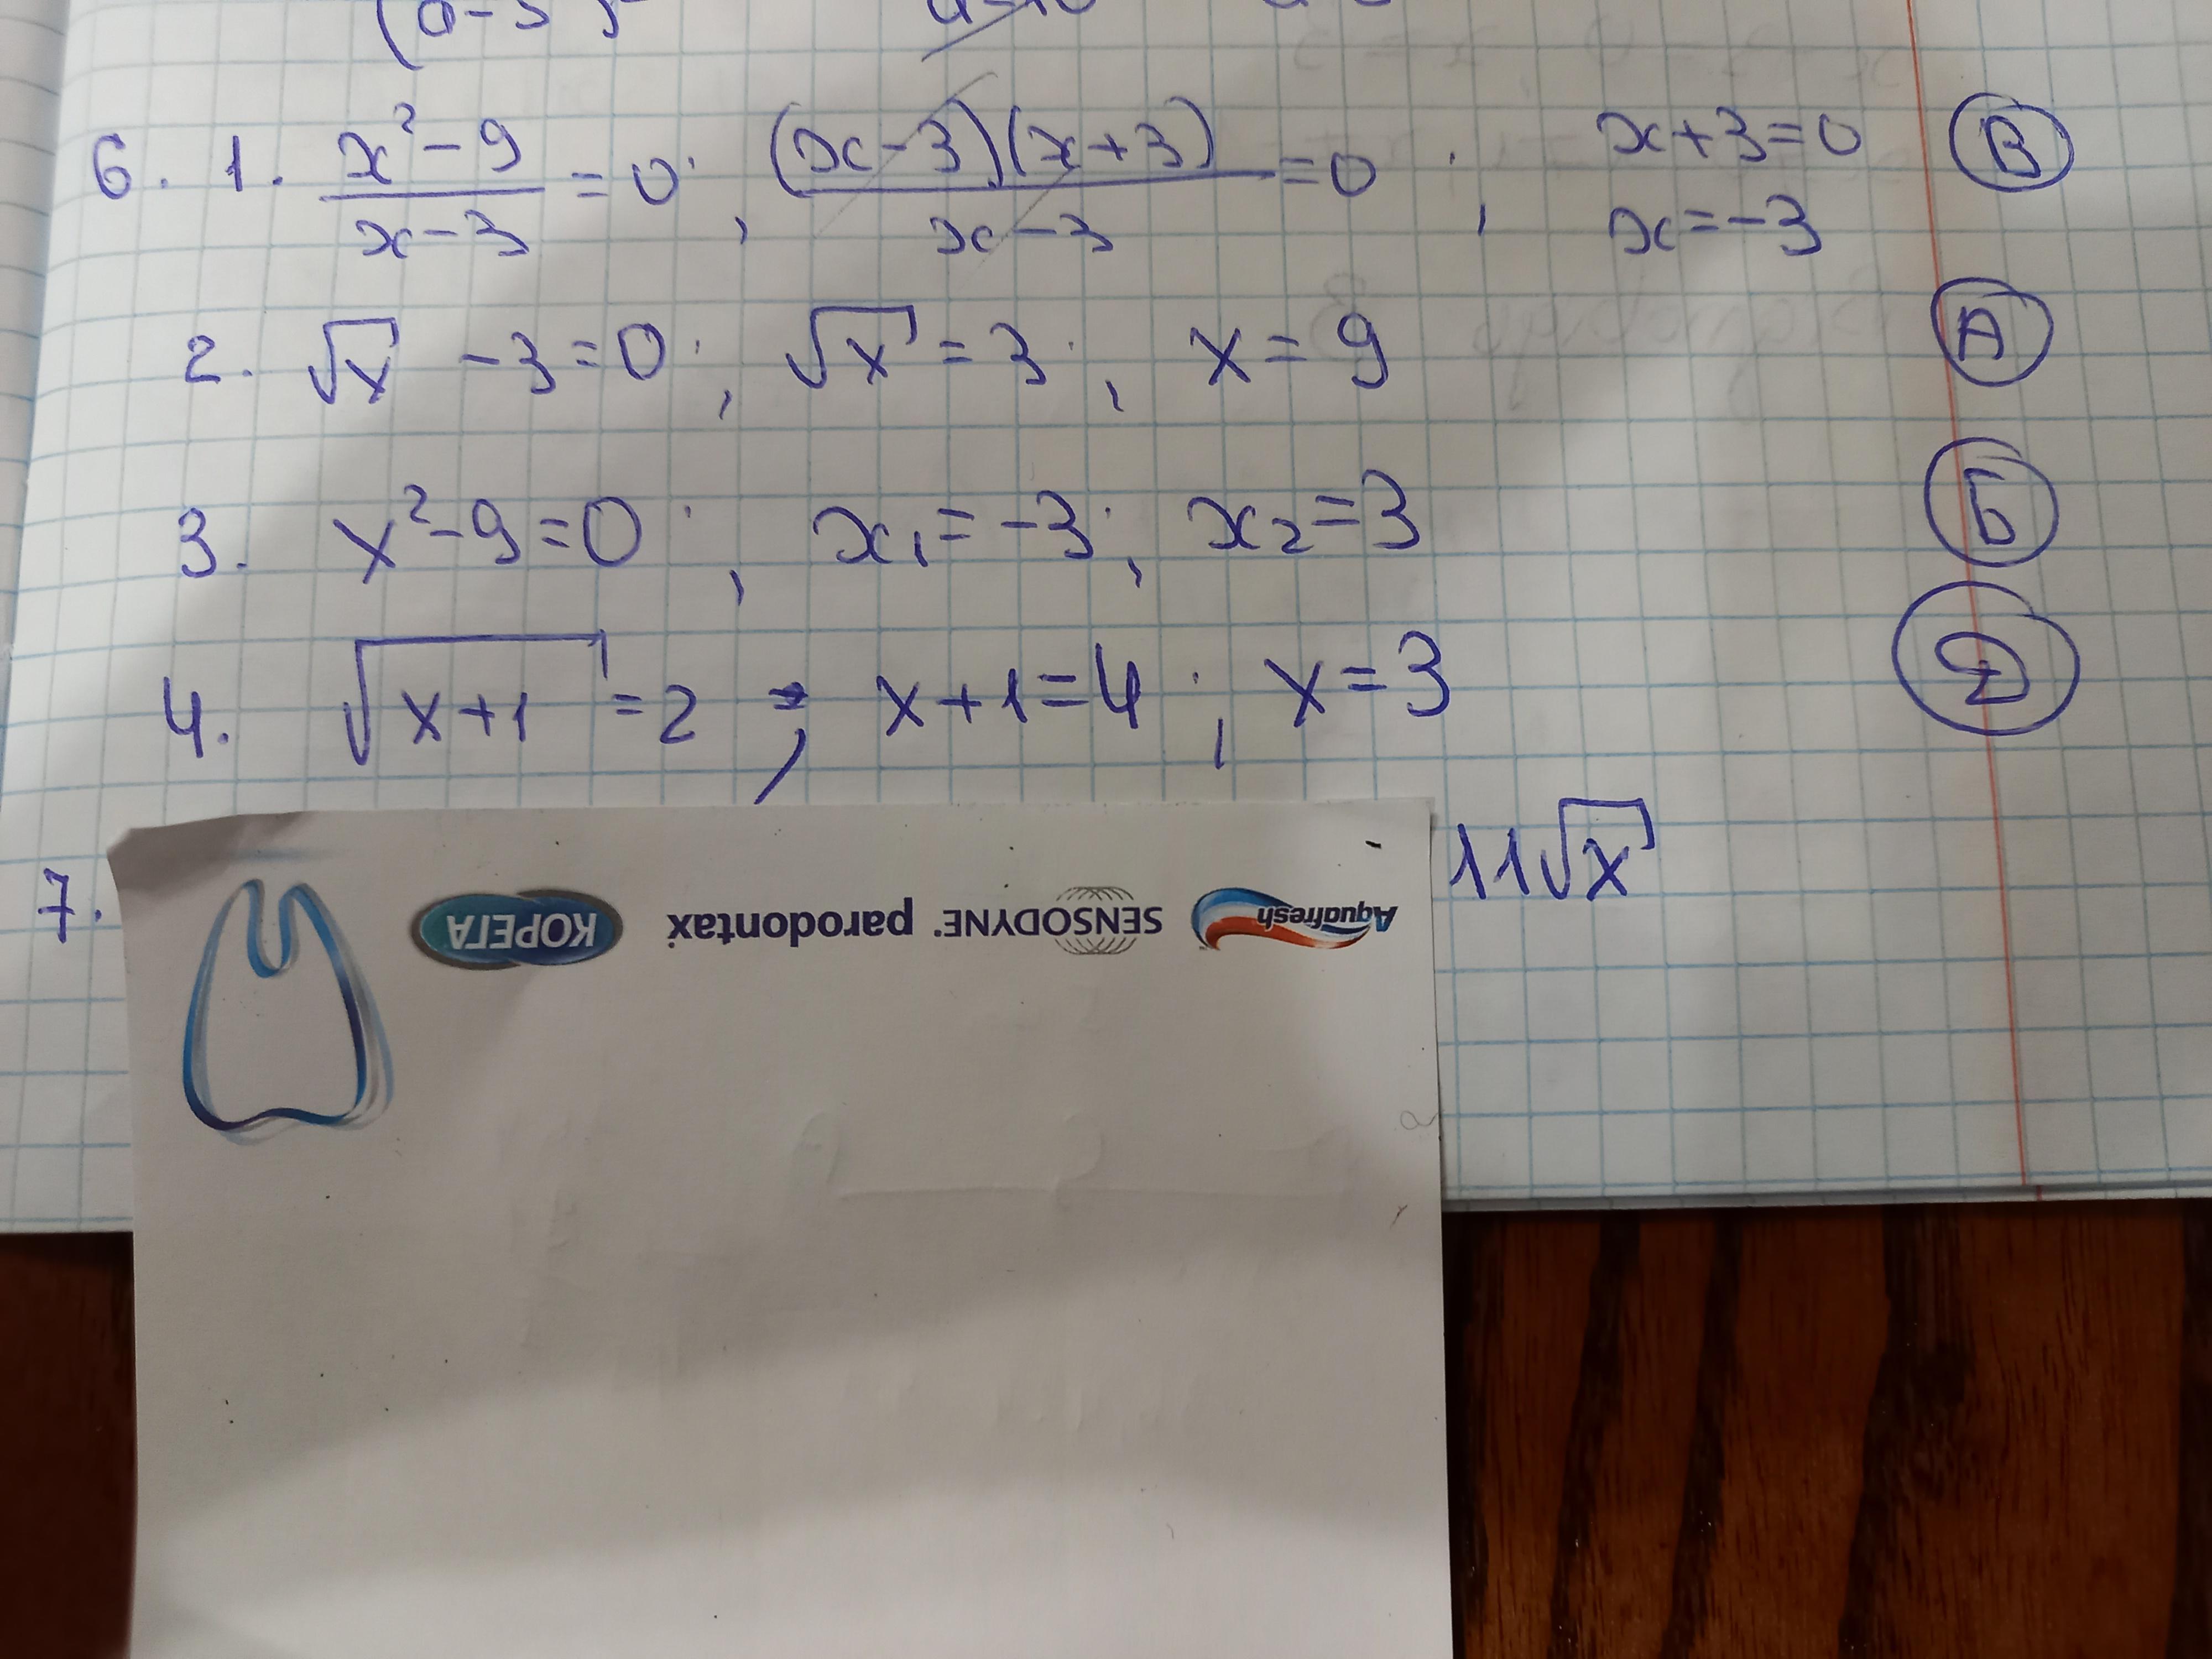 (a-5)
6. 1. (x²-9)/(x-3) = 0; ((x-3)(x+3))/(x-3) = 0; x+3=0 В
x=-3
2. √x -3=0; √x = 3; x=9 А
3. x²-9=0; x₁=-3; x₂=3 Б
4. √(x+1) = 2; x+1=4; x=3 Д
7. 11√x
Aquafresh SENSODYNE® parodontax КОРЕГА